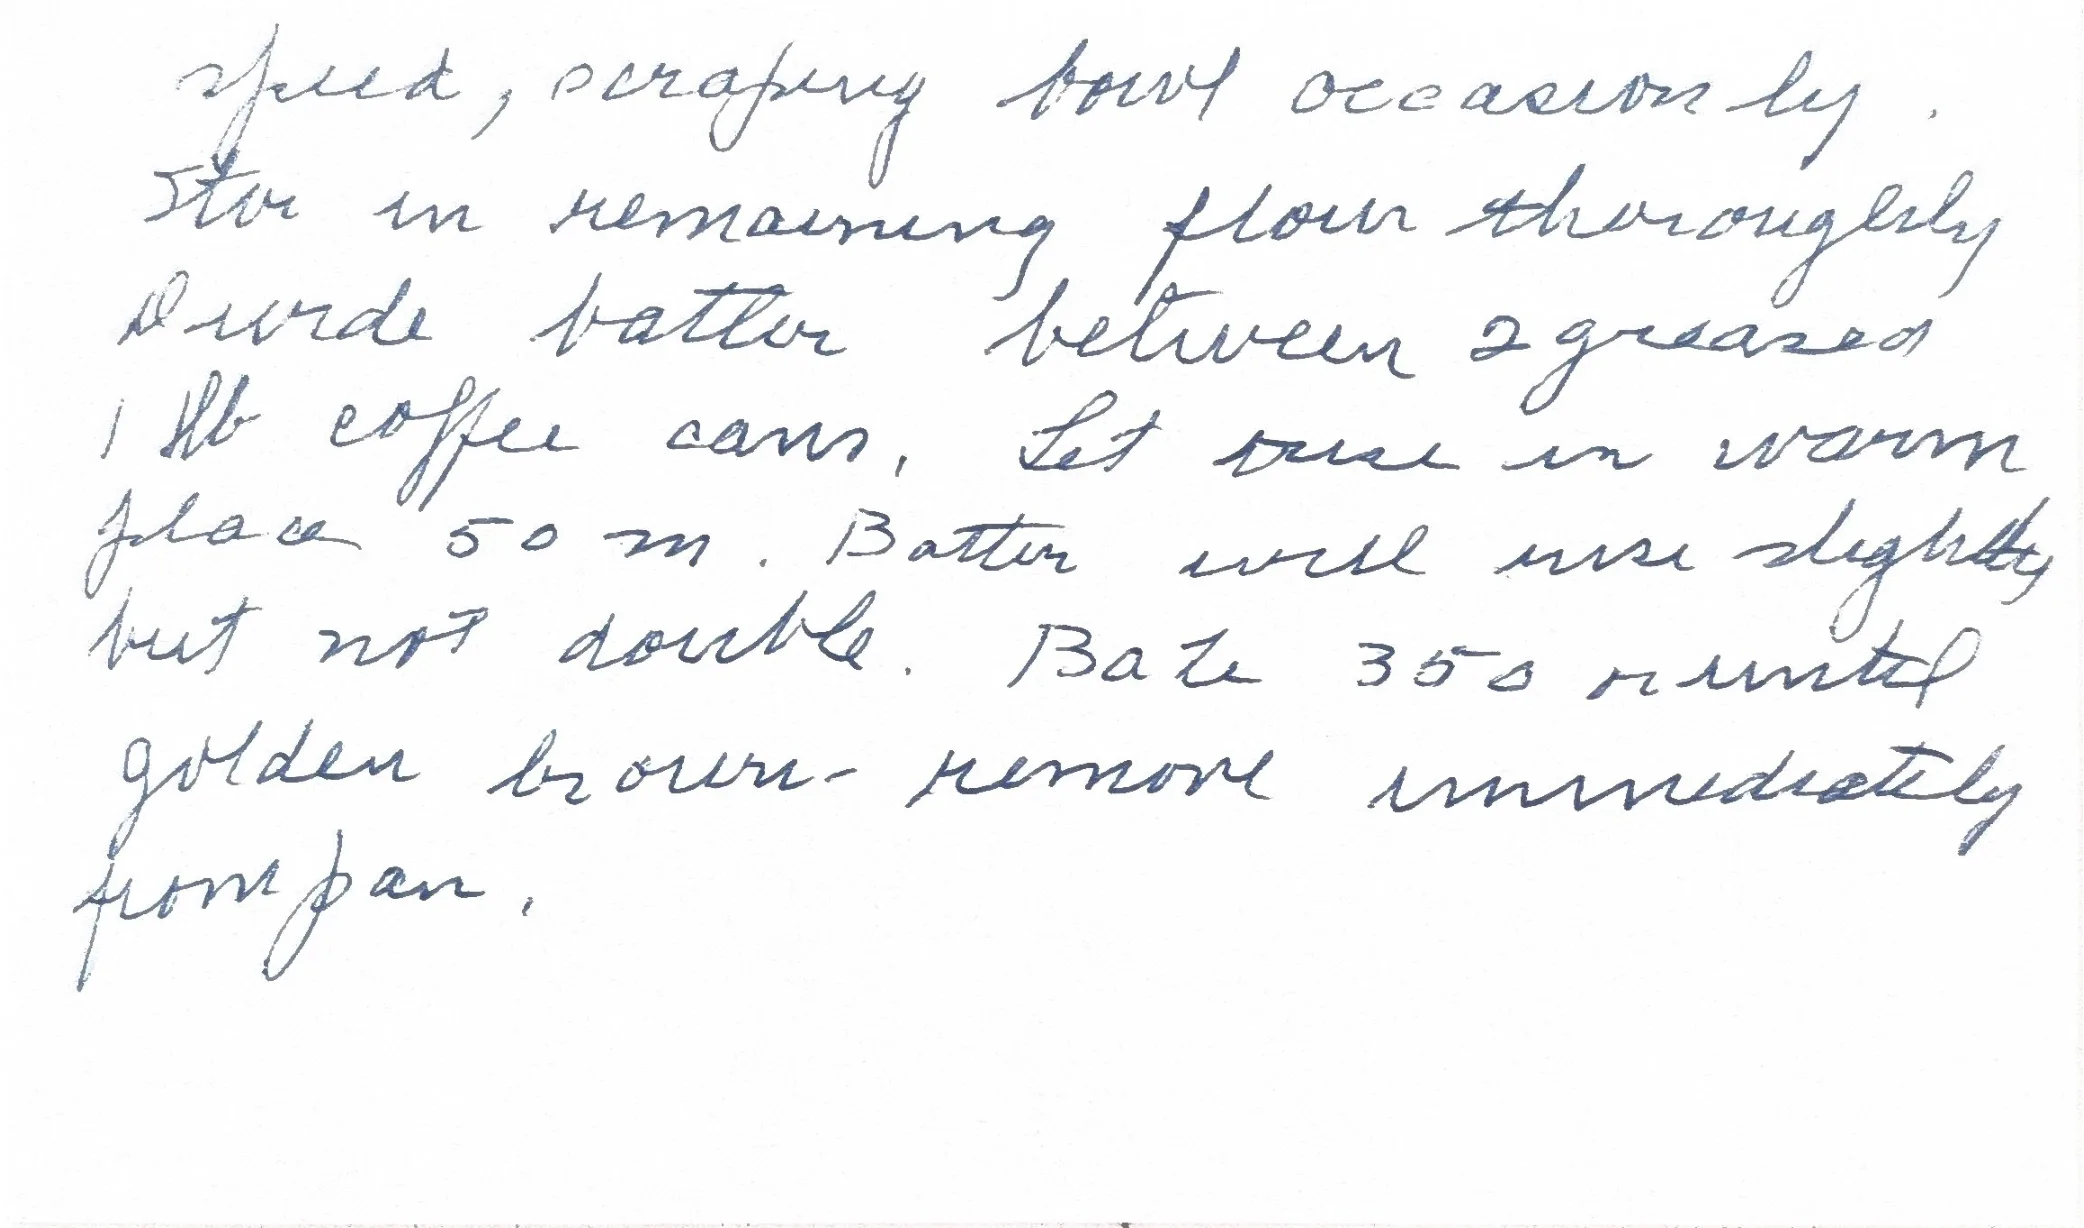 speed, scraping bowl occasionly.
Stir in remaining flour thoroughly
Divide batter between 2 greased
1 lb coffee cans. Let rise in warm
place 50 m. Batter will rise slightly
but not double. Bake 350 or until
golden brown - remove immediately
from pan.